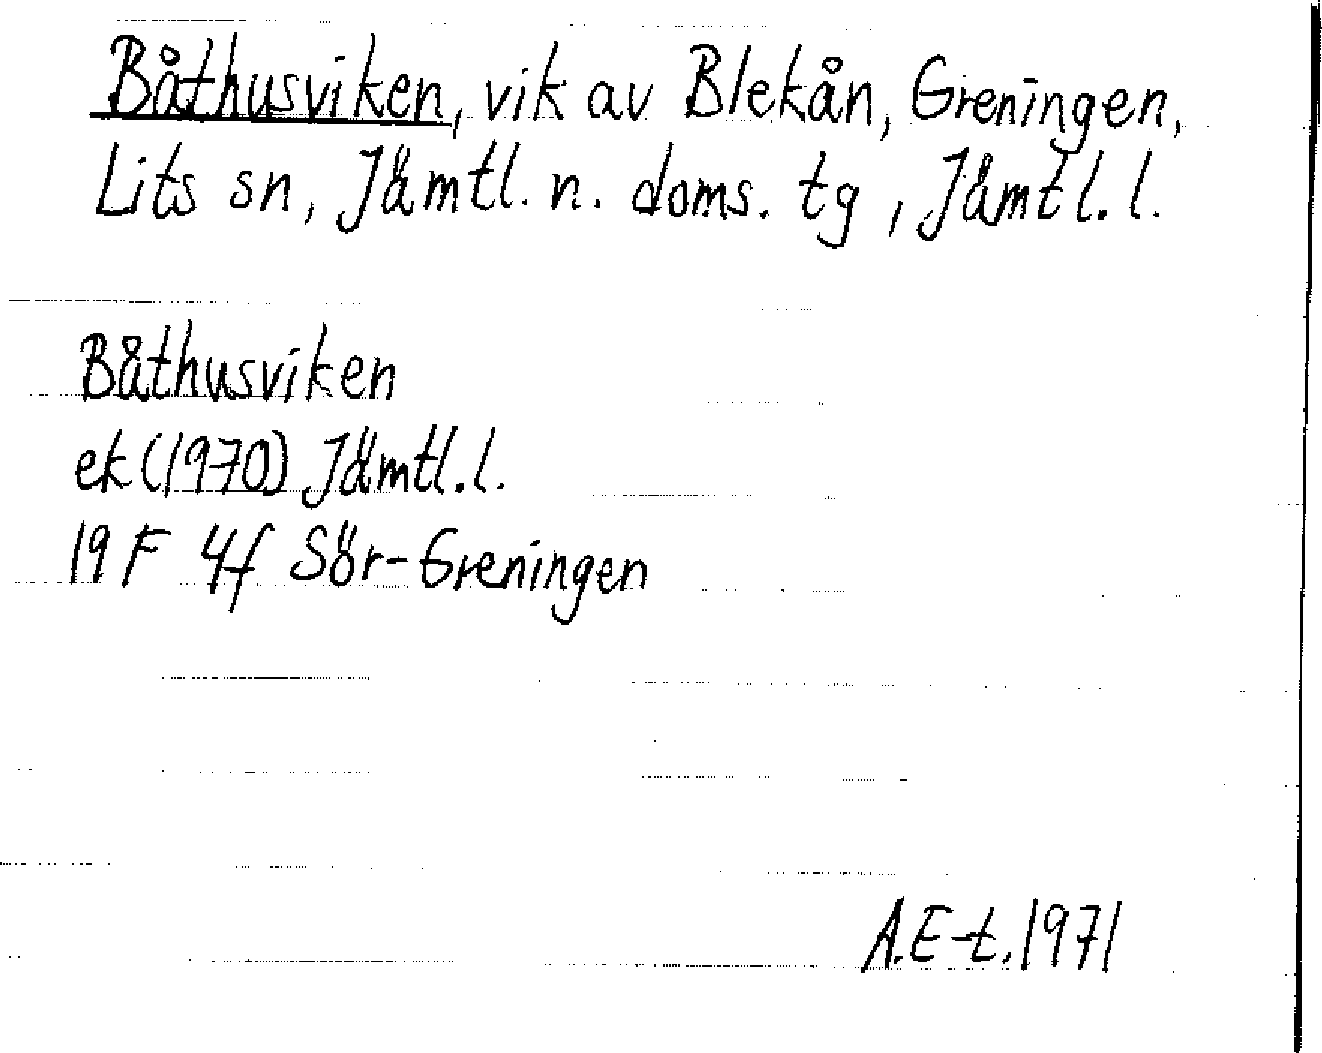 Båthusviken, vik av Blekån, Greningen,
Lits sn, Jämtl. n. doms. tg, Jämtl. l.
Båthusviken
ek (1970) Jämtl. l.
19 F 4f Sör-Greningen
A.E-t. 1971